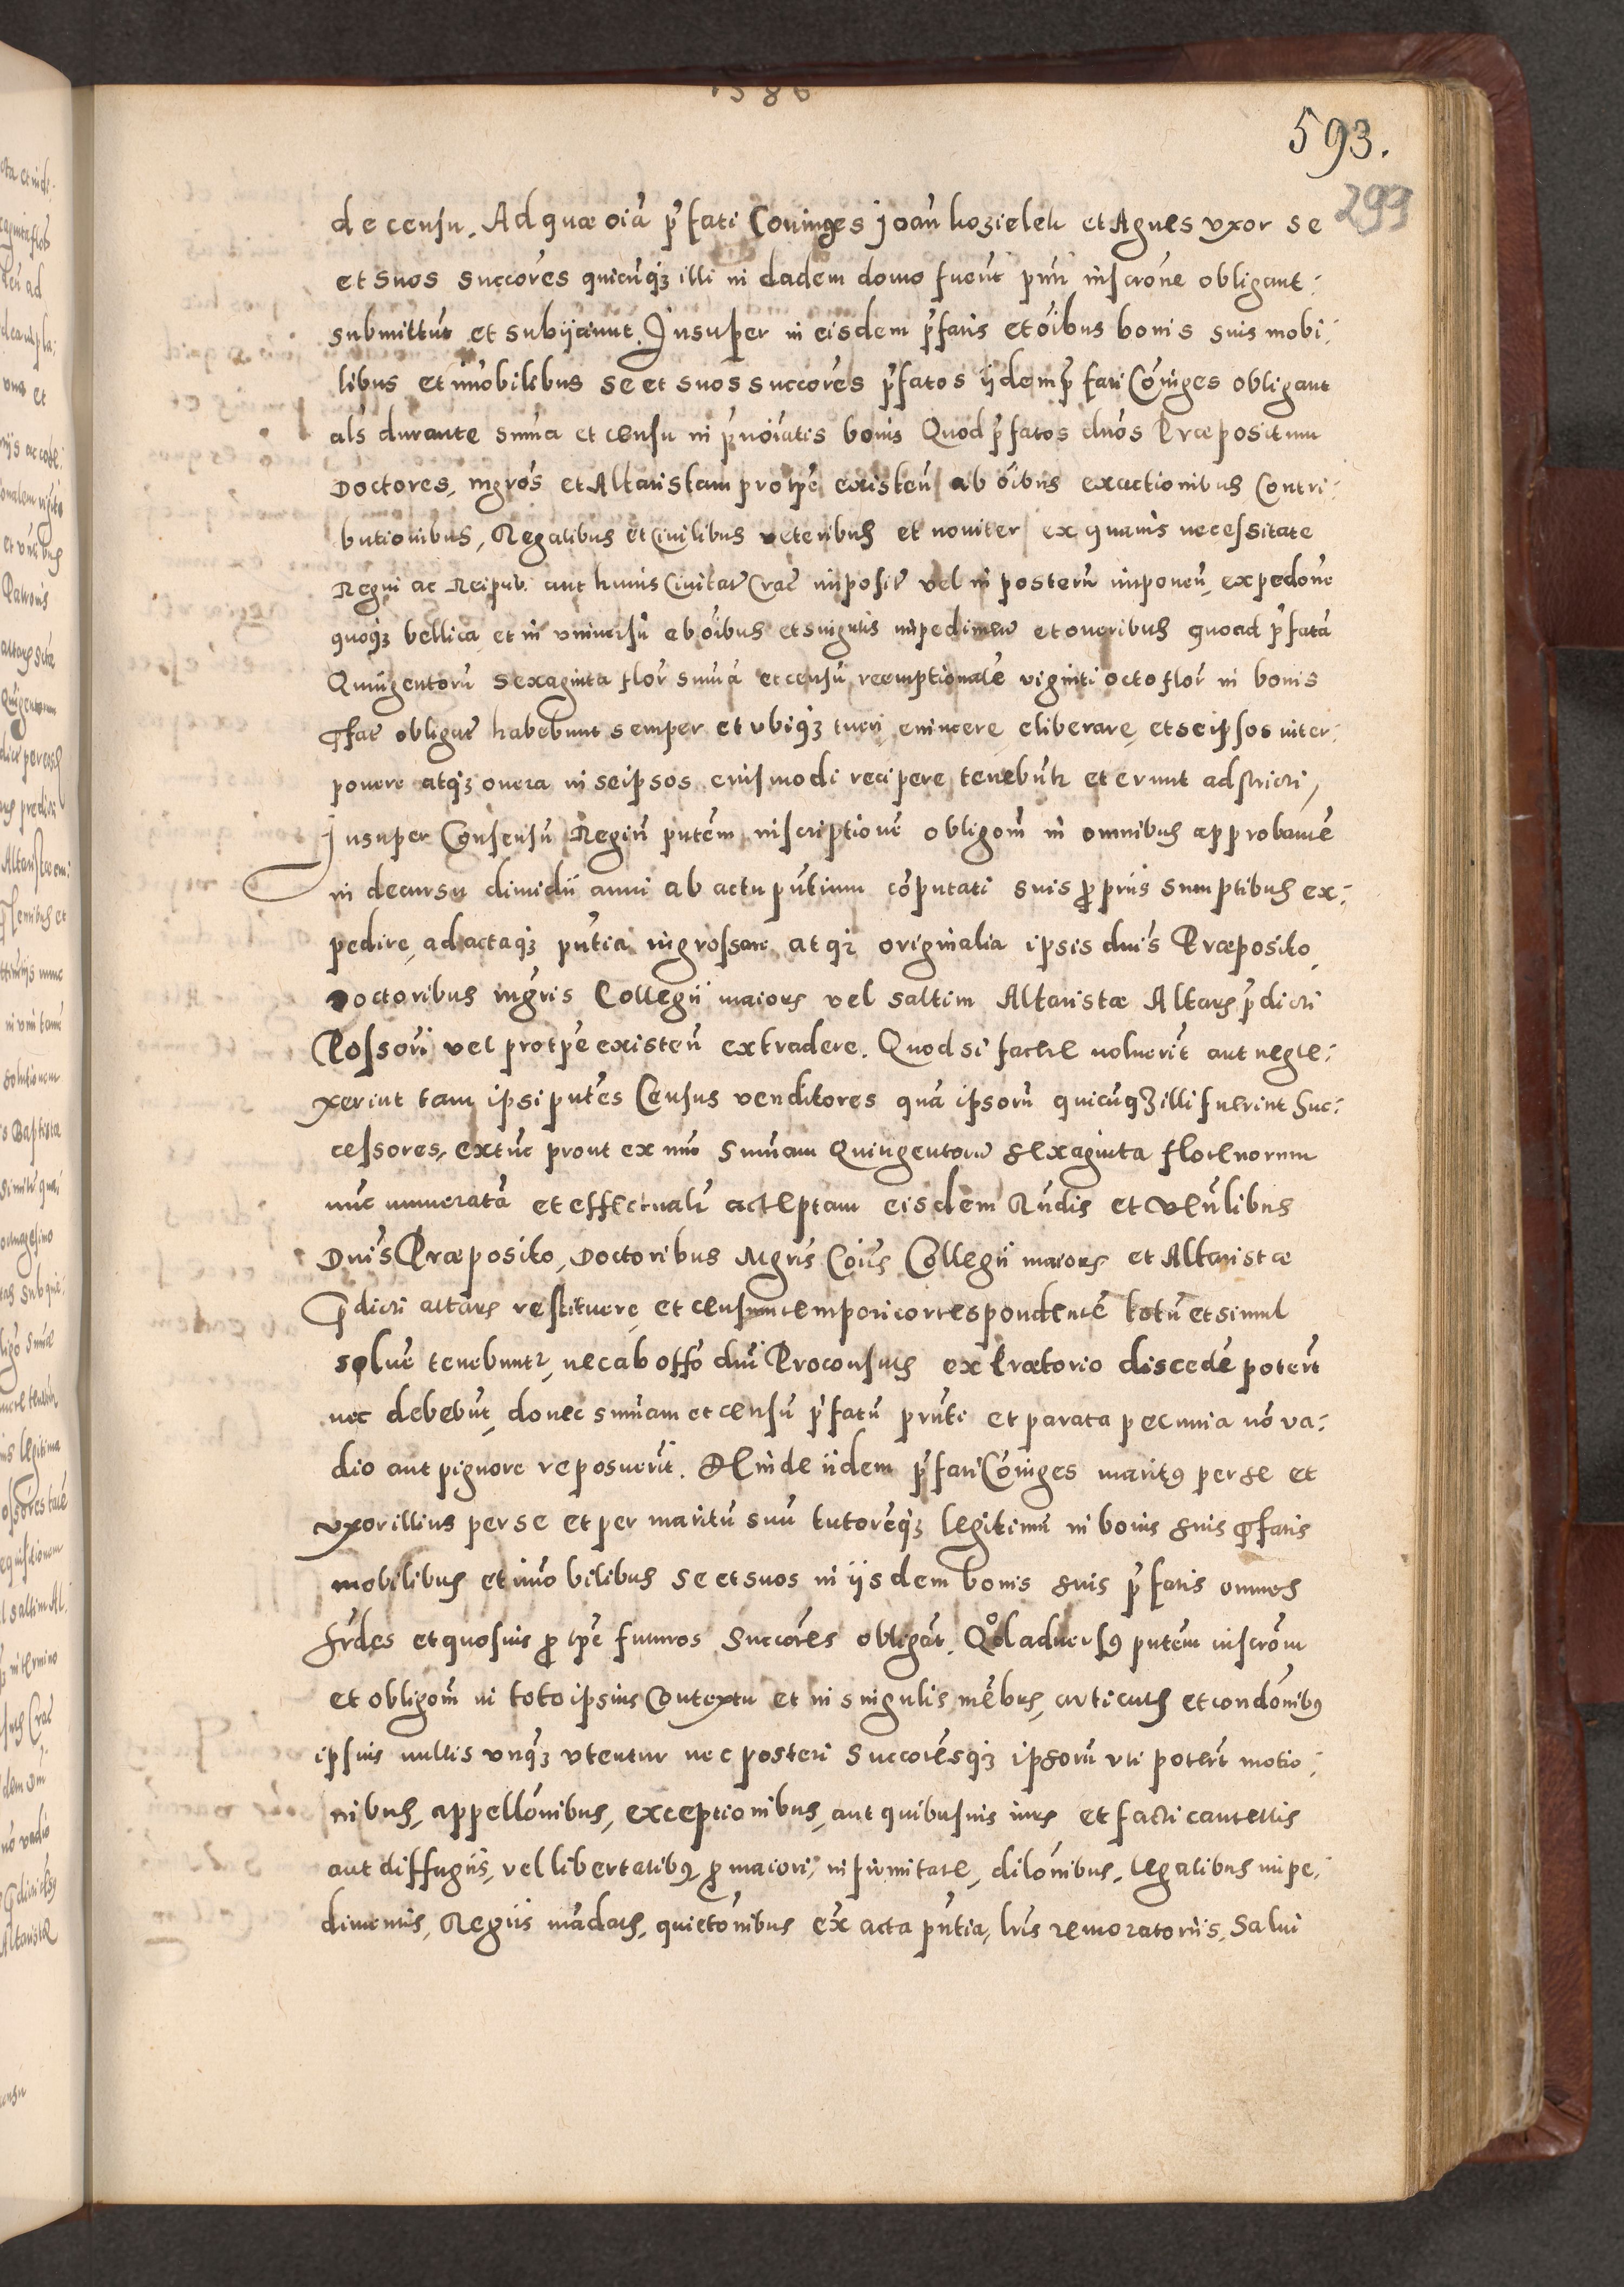 1586
593.
299
de censu. Ad quæ oīa p̄fati Coniuges Joañ kozielek et Agnes vxor se
et suos succores quicūq3 illi in eadem domo fuerīt pn̄ti inscrōne obligant:
submittūt et subijciunt. Insuper in eisdem p̄fatis et oībus bonis suis mobi:
libus et im̄obilibus se et suos succores p̄fatos ijdem p̄fati Cōiuges obligant
als durante sum̄a et censu in p̄noiatis bonis Quod p̄fatos dnōs Præpositum
Doctores, mgrōs et Altaristam pro tp̄e existeñ ab oībus exactionibus Contri:
butionibus, Regalibus et Ciuilibus veteribus et nouiter ex quauis necessitate
Regni ac Reipub. aut huius Ciuitat Crac imposit vel in posterū imponeñ, expedōne
quoq3 bellica et in vniuersū ab oībus et singulis impedimen̄t et oneribus quoad p̄fatā
Quingentorū sexaginta flor sum̄ā et censū reemptionalē viginti octo flor in bonis
p̄fat obligat habebunt semper et vbiq3 tueri, euincere eliberare, et seipsos inter:
ponere atq3 onera in seipsos eiusmodi recipere tenebūtr et erunt adstricti,
Insuper Consensū Regiū pn̄tem inscriptionē obligoñi in omnibus approbantē
in decursu dimidii anni ab actu pn̄tium cōputati suis proprijs sumptibus ex:
pedire, ad actaq3 pn̄tia ingrossare atq3 originalia ipsis dnis Præposito,
Doctoribus mgris Collegii maioris vel saltim Altaristæ Altaris p̄dicti
Possori vel pro tp̄e existeñ extradere. Quod si facere noluerīt aut negle:
xerint tam ipsi pn̄tes Census venditores quā ipsorū quicūq3 illi fuerint suc:
cessores, extūc prout ex nūc sum̄am Quingentorū sexaginta florenorum
nūc numeratā et effectualr acceptam eisdem Rn̄dis et Ven̄libus
Dnis Præposito, Doctoribus Mgris Coīis Collegii maioris et Altaristæ
p̄dicti altaris restituere, et censum tempori correspondentē totū et simul
soluē tenebuntr, nec ab offō dn̄i Proconsulis ex Prætorio discedē poterīt
nec debebūt, donec sum̄am et censū p̄fatū prn̄ti et parata pecunia nō va:
dio aut pignore reposuerīt. Deinde iidem p̄fati Cōiuges maritus per se et
vxor illius per se et per maritū suū tutorēq3 legitimū in bonis suis p̄fatis
mobilibus et im̄obilibus se et suos in ijsdem bonis suis p̄fatis omnes
hr̄des et quosuis pro tp̄e futuros Succores obligāt. Qod aduersus pn̄tem inscrōm
et obligoñi in toto ipsius Contextu et in singulis mēbris, articulis et condōnibus
ipsius nullis vnq3 vtentur nec posteri Succoresq3 ipsorū vti poterīt motio:
nibus, appellōnibus, exceptionibus, aut quibusuis iuris et facti cautellis
aut diffugiis, vel libertatibus, pro maiori, infirmitate, dilōnibus, legalibus impe:
dimentis, Regiis mādatis, quietōnibus ex acta pn̄tia, lris remoratoriis, Salui